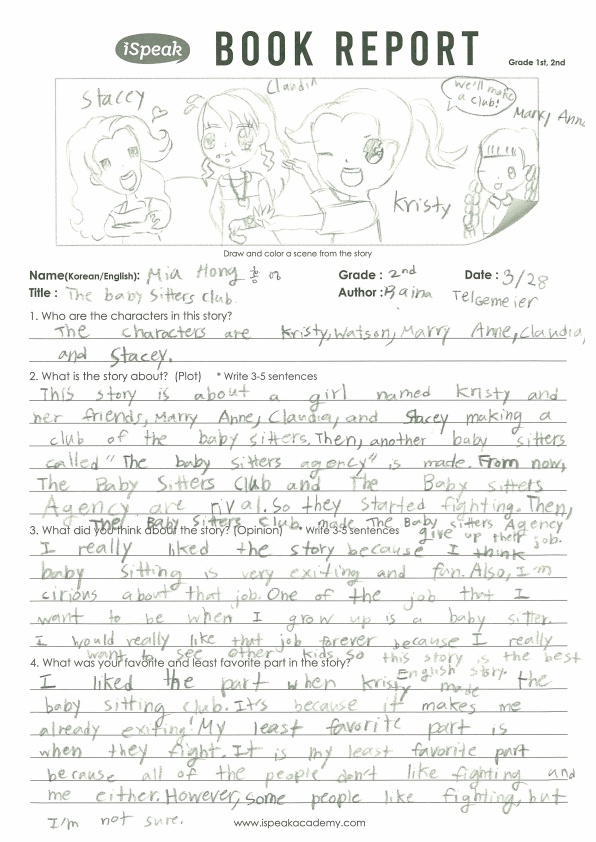 iSpeak
BOOK REPORT
Grade 1st, 2nd
Stacey
Claudia
Kristy
we'll make
a club!
Marry Anne
Draw and color a scene from the story
Name(Korean/English): Mia Hong
Grade : 2nd
Date : 3/28
Title : The baby Sitters Club.
Author : Raina Telgemeier
1. Who are the characters in this story?
The characters are Kristy, Watson, Marry Anne, Claudia,
and Stacey.
2. What is the story about? (Plot) * Write 3-5 sentences
This story is about a girl named Kristy and
her friends, Marry Anne, Claudia, and Stacey making a
club of the baby sitters. Then, another baby sitters
called "The baby sitters agency" is made. From now,
The Baby Sitters Club and The Baby sitters
Agency are rival. So they started fighting. Then,
The Baby Sitters Club made The Baby sitters Agency
give up their job.
3. What did you think about the story? (Opinion) * Write 3-5 sentences
I really liked the story because I think
baby sitting is very exiting and fun. Also, I'm
cirious about that job. One of the job that I
want to be when I grow up is a baby sitter.
I would really like that job forever because I really
want to see other kids. So this story is the best
English story.
4. What was your favorite and least favorite part in the story?
I liked the part when kristy made the
baby sitting club. It's because it makes me
already exiting! My least favorite part is
when they fight. It is my least favorite part
because all of the people don't like fighting and
me either. However, some people like fighting, but
I'm not sure.
www.ispeakacademy.com